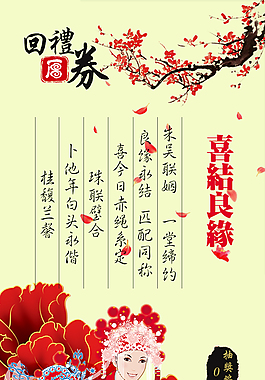 回禮券
喜結良緣
朱吴联姻 一堂缔约
良缘永结 匹配同称
喜今日赤绳系定
珠联璧合
卜他年白头永偕
桂馥兰馨
抽獎
0